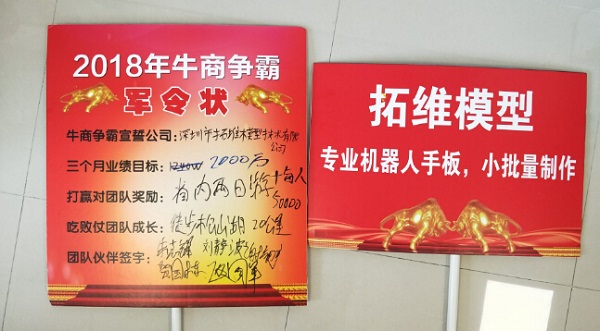 2018年牛商争霸
军令状
牛商争霸宣誓公司：深圳市拓维模型技术有限公司
三个月业绩目标： 2000万
打赢对团队奖励：省内两日游+每人50000
吃败仗团队成长：徒步松山湖20公里
团队伙伴签字： 刘静
拓维模型
专业机器人手板，小批量制作